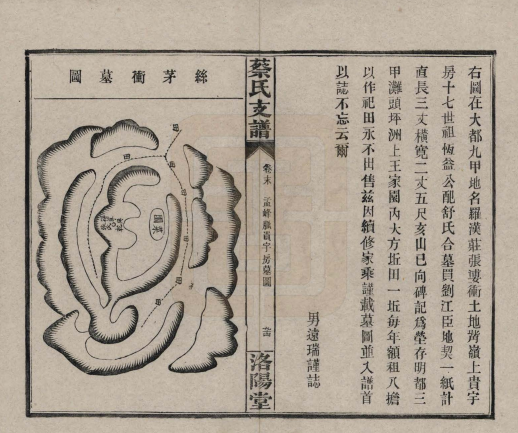 右圖在大都九甲地名羅漢莊張婆衝土地背嶺上貴字
房十七世祖恆益公配舒氏合墓買劉江臣地契一紙計
直長三丈橫寬二丈五尺亥山巳向碑記爲塋存明都三
甲灘頭坪洲上王家園內大方坵田一坵每年額租八擔
以作祀田永不出售兹因續修家乘謹載墓圖並入譜首
以誌不忘云爾
男遠瑞謹誌
蔡氏支譜
卷末
孟峰
貴字房墓圖
洛陽堂
絲茅衝墓圖
田
田
田